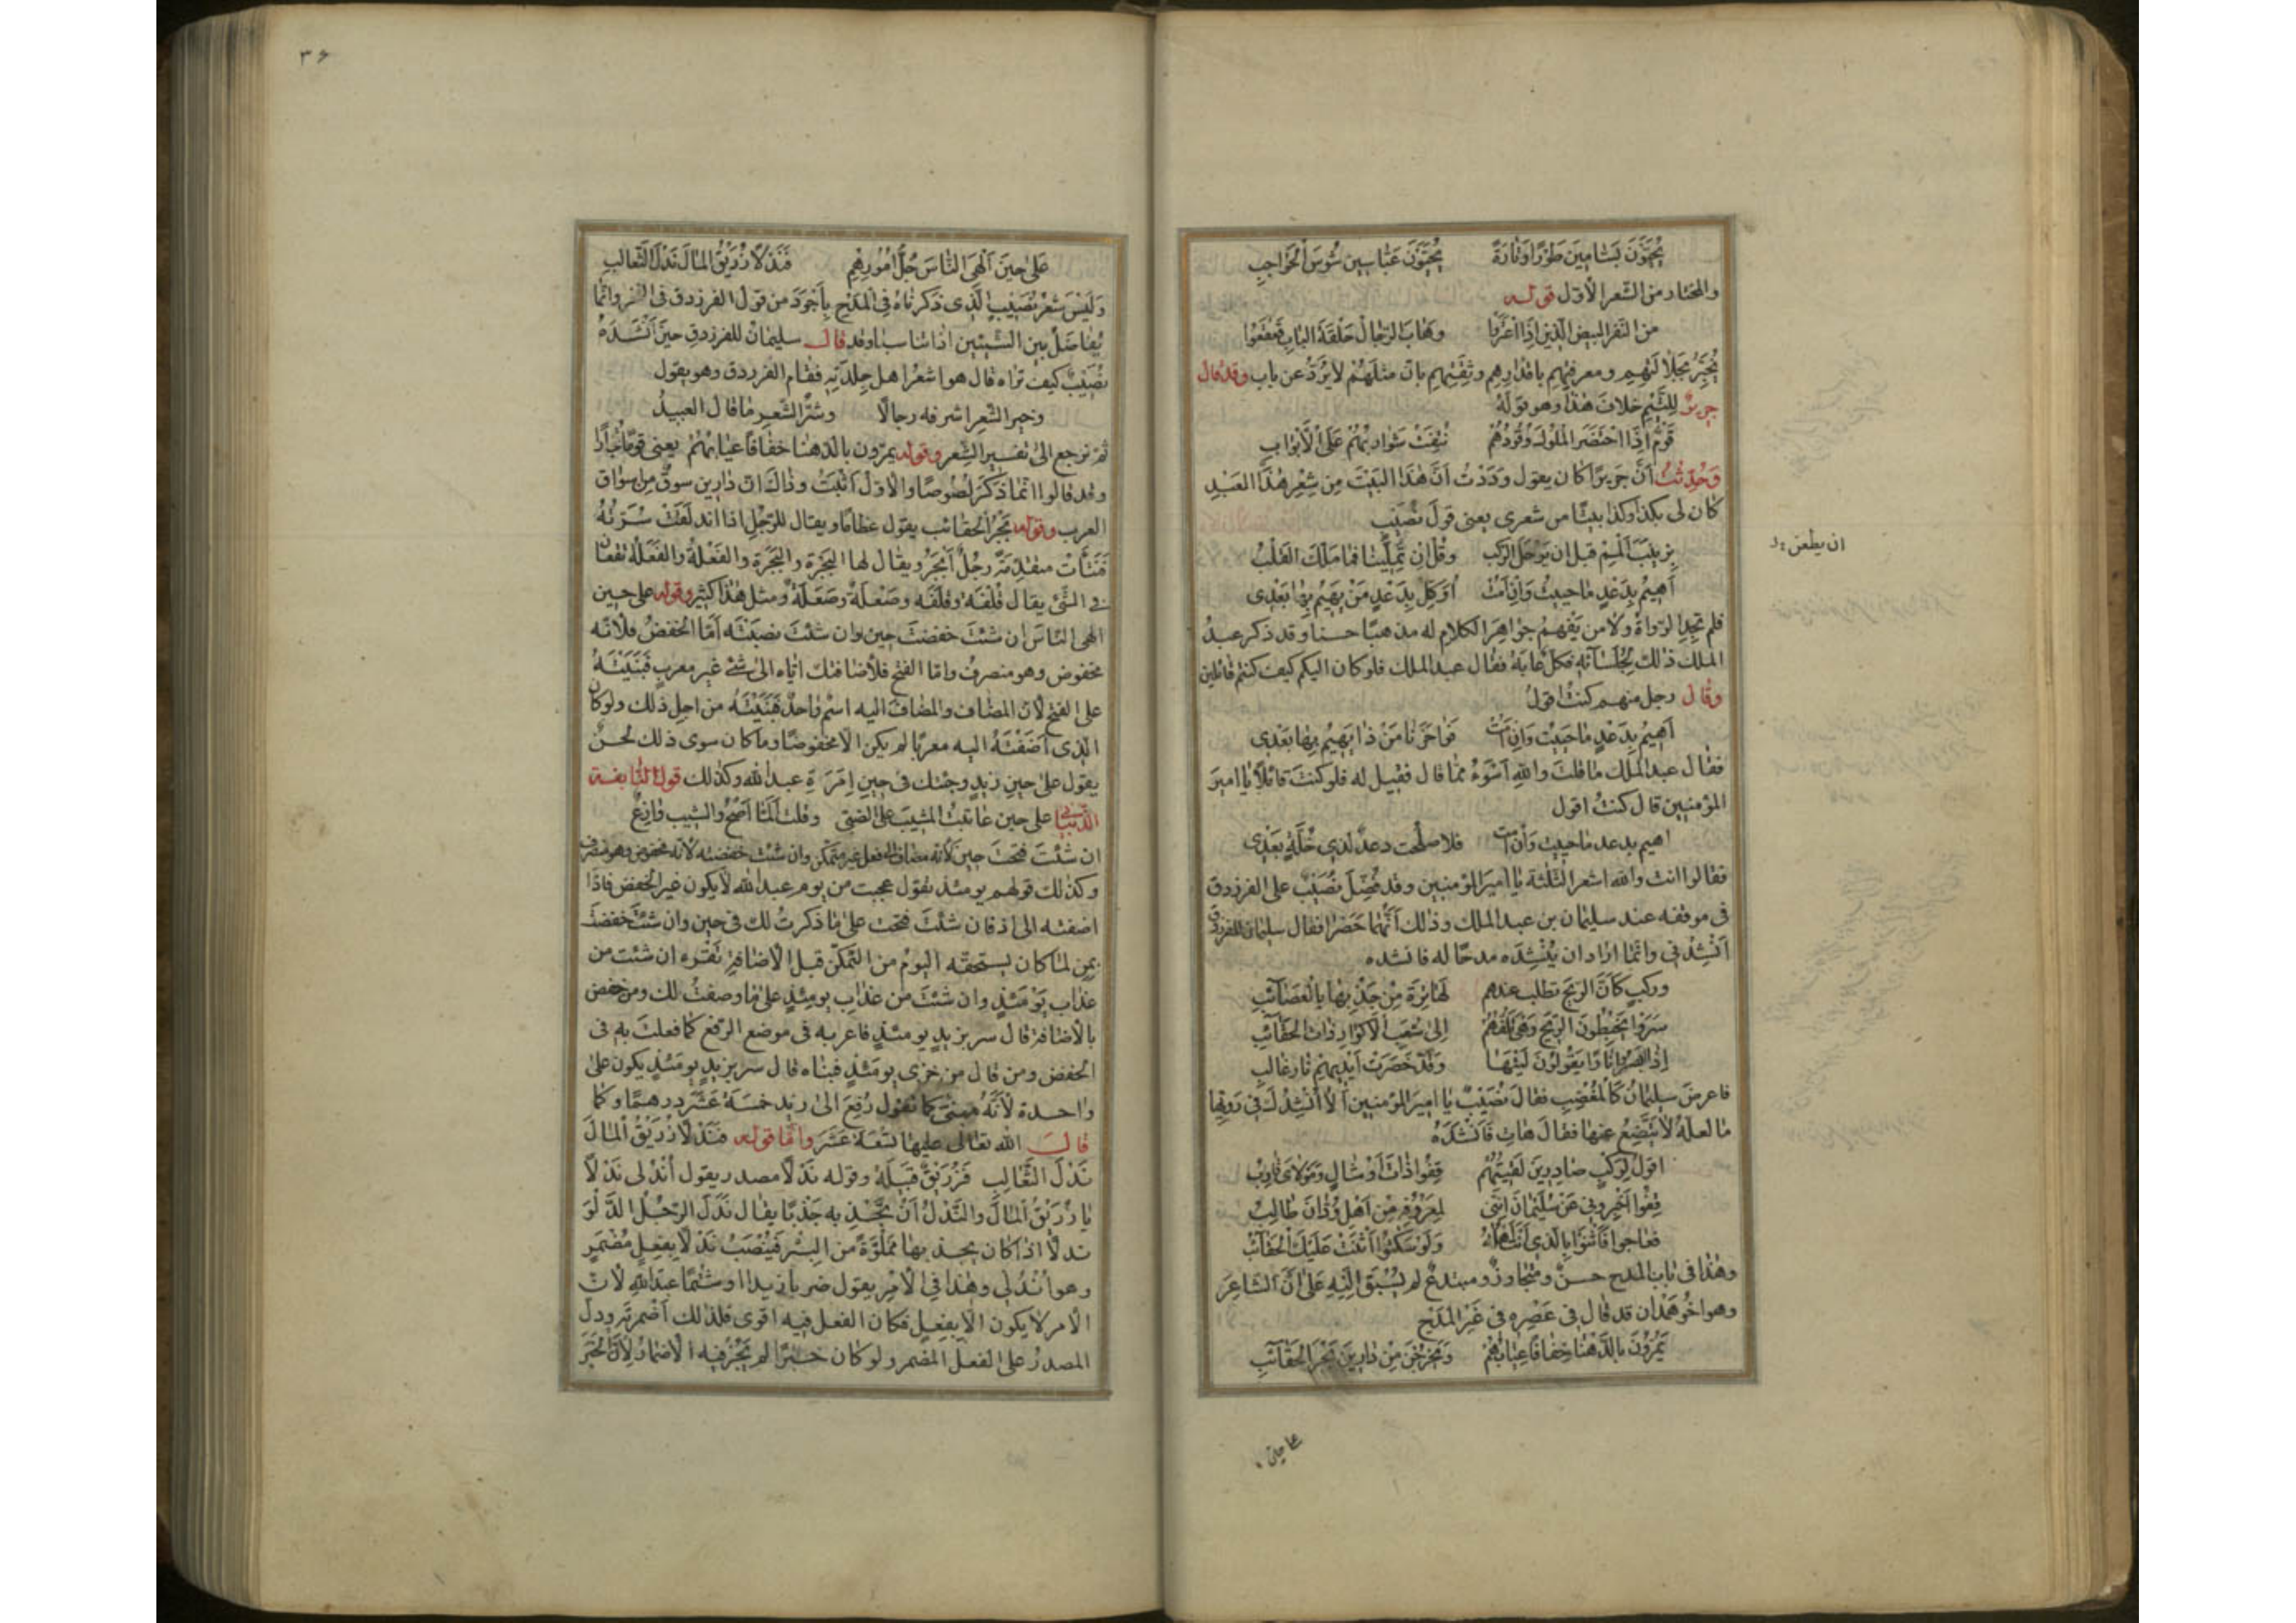 يُحَيَّوْنَ بَسَّامِينَ طَوْرًا وَتَارَةً يُحَيَّوْنَ عَبَّاسِينَ شُوسَ الْحَوَاجِبِ
والمختار من الشعر الأول قوله
من النفر البيض الذين إذا اعتزوا وهاب الرجال حلقة الباب قعقعوا
يُخبر بجلالتهم ومعرفتهم باقدارهم وثقتهم بان مثلهم لا يرد عن باب وقد قال
جرير للتيم خلاف هذا وهو قوله
قوم إذا احتضر الملوك وفودهم نتفت شواربهم على الأبواب
وحدثت أن جريرا كان يقول وددت أن هذا البيت من شعر هذا العبد
كان لي بكذا وكذا بيتا من شعري يعني قول نصيب
بزينب ألمم قبل ان يرحل الركب وقل ان تملينا فما ملك القلب
ان يظعن
أهيم بدعد ما حييت وان أمت أوكل بدعد من يهيم بها بعدي
فلم تجد الرواة ولا من يفهم جواهر الكلام له مذهبا حسنا وقد ذكر عبد
الملك ذلك لجلسائه فكل عابه فقال عبد الملك فلو كان اليكم كيف كنتم قائلين
وقال رجل منهم كنت اقول
أهيم بدعد ما حييت وان أمت فواحزنا من ذا يهيم بها بعدي
فقال عبد الملك ما قلت والله أسوء مما قال فقيل له فلو كنت قائلا يا امير
المؤمنين قال كنت اقول
اهيم بدعد ما حييت وان أمت فلا صلحت دعد لذي خلة بعدي
فقالوا انت والله اشعر الثلثة يا امير المؤمنين وقد فضل نصيب على الفرزدق
في موقفه عند سليمان بن عبد الملك وذلك أنهما حضرا فقال سليمان للفرزدق
أنشدني وانما اراد ان ينشده مدحا له فانشده
وركب كأن الريح تطلب عندهم لها ترة من جذبها بالعصائب
سروا يخبطون الريح وهي تلفهم إلى شعب الأكوار ذات الحقائب
إذا أبصروا نارا يقولون ليتها وقد خصرت أيديهم نار غالب
فاعرض سليمان كالمغضب فقال نصيب يا امير المؤمنين ألا أنشدك في رويها
ما لعله لا يتضع عنها فقال هات فأنشده
اقول لركب صادرين لقيتهم قفوا ذات أوشال ومولاك قارب
قفوا أخبروني عن سليمان انني لمعروفه من أهل ودان طالب
فعاجوا فأثنوا بالذي أنت أهله ولو سكتوا أثنت عليك الحقائب
وهذا في باب المدح حسن ومتجاوز ومبتدع لم يسبق إليه على أن الشاعر
وهو أخو همدان قد قال في عصره في غير المدح
يمرون بالدهنا خفافا عيابهم ويخرجن من دارين بجر الحقائب
على حين
٣٦
على حين ألهى الناس جل أمورهم فندلا زريق المال ندل الثعالب
وليس شعر نصيب الذي ذكرناه في المدح بأجود من قول الفرزدق في الفخر وانما
يفاضل بين الشيئين اذا تناسبا وقد قال سليمان للفرزدق حين أنشده
نصيب كيف تراه قال هو اشعر اهل جلدته فقام الفرزدق وهو يقول
وخير الشعر اشرفه رجالا وشر الشعر ما قال العبيد
ثم نرجع الى تفسير الشعر وقوله يمرون بالدهنا خفافا عيابهم يعني قوما تجارا
وقد قالوا انما ذكر لصوصا والاول أثبت وذاك ان دارين سوق من اسواق
العرب وقوله بجر الحقائب يقول عظاما ويقال للرجل اذا اندلقت سرته
فنتأت متقدمة رجل أبجر ويقال لها البجرة والبجرة والفعلة والفعلة تقعان
في الشئ يقال قلفة وقلفة وصعلة وصعلة ومثل هذا كثير وقوله على حين
الهى الناس ان شئت خفضت حين وان شئت نصبته أما الخفض فلانه
مخفوض وهو منصرف واما الفتح فلأضافتك اياه الى شئ غير معرب فبنيته
على الفتح لأن المضاف والمضاف اليه اسم واحد فبنيته من اجل ذلك ولو كان
الذي أضفته اليه معربا لم يكن الا مخفوضا وما كان سوى ذلك لحن
يقول على حين زيد وجئتك في حين إمرة عبد الله وكذلك قول النابغة
الذبياني على حين عاتبت المشيب على الصبى وقلت ألما أصح والشيب وازع
ان شئت فتحت حين لأنه مضاف الى فعل غير متمكن وان شئت خفضته لأنه مخفوض وهو منصرف
وكذلك قولهم يومئذ تقول عجبت من يوم عبد الله لا يكون غير الخفض فاذا
اضفته الى اذ فان شئت فتحت على ما ذكرت لك في حين وان شئت خفضت
بمن لما كان يستحقه اليوم من التمكن قبل الاضافة تقره ان شئت من
عذاب يومئذ وان شئت من عذاب يومئذ على ما وصفت لك ومن خفض
بالأضافة قال سر بزيد يومئذ فاعربه في موضع الرفع كما فعلت به في
الخفض ومن قال من خزى يومئذ فبناه قال سر بزيد يومئذ يكون على
واحدة لأنه مبني كما تقول دفع الى زيد خمسة عشر درهما وكما
قال الله تعالى عليها تسعة عشر واما قوله فندلا زريق المال
ندل الثعالب فزريق قبيلة وقوله ندلا مصدر يقول أندلى ندلا
يا زريق المال والندل أن تجذبه جذبا يقال ندل الرجل الدلو
ندلا اذا كان يجذبها مملؤة من البئر فينصب ندلا بفعل مضمر
وهو أندلى وهذا في الأمر يقول ضربا زيدا وشتما عبد الله لأن
الأمر لا يكون الا بفعل فكان الفعل فيه اقوى فلذلك أضمرته ودل
المصدر على الفعل المضمر ولو كان خبرا لم يجز فيه الأضمار لأن الخبر